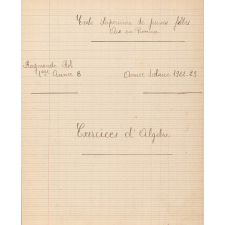 Ecole Supérieure de jeunes filles
Raymonde
1ère Année B
Année Scolaire 1922-23
Exercices d'Algèbre